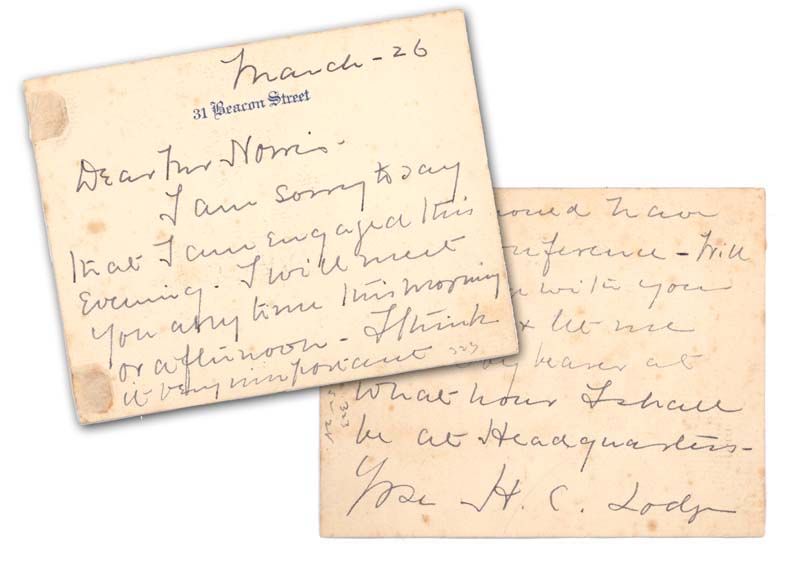 March - 26
31 Beacon Street
Dear Mr Norris -
I am sorry to say
that I am engaged this
evening. I will meet
you any time this morning
or afternoon - I think
it very important 223
should have
conference - Will
with you
& let me
by bearer at
what hour I shall
be at Headquarters -
Yrs H. C. Lodge